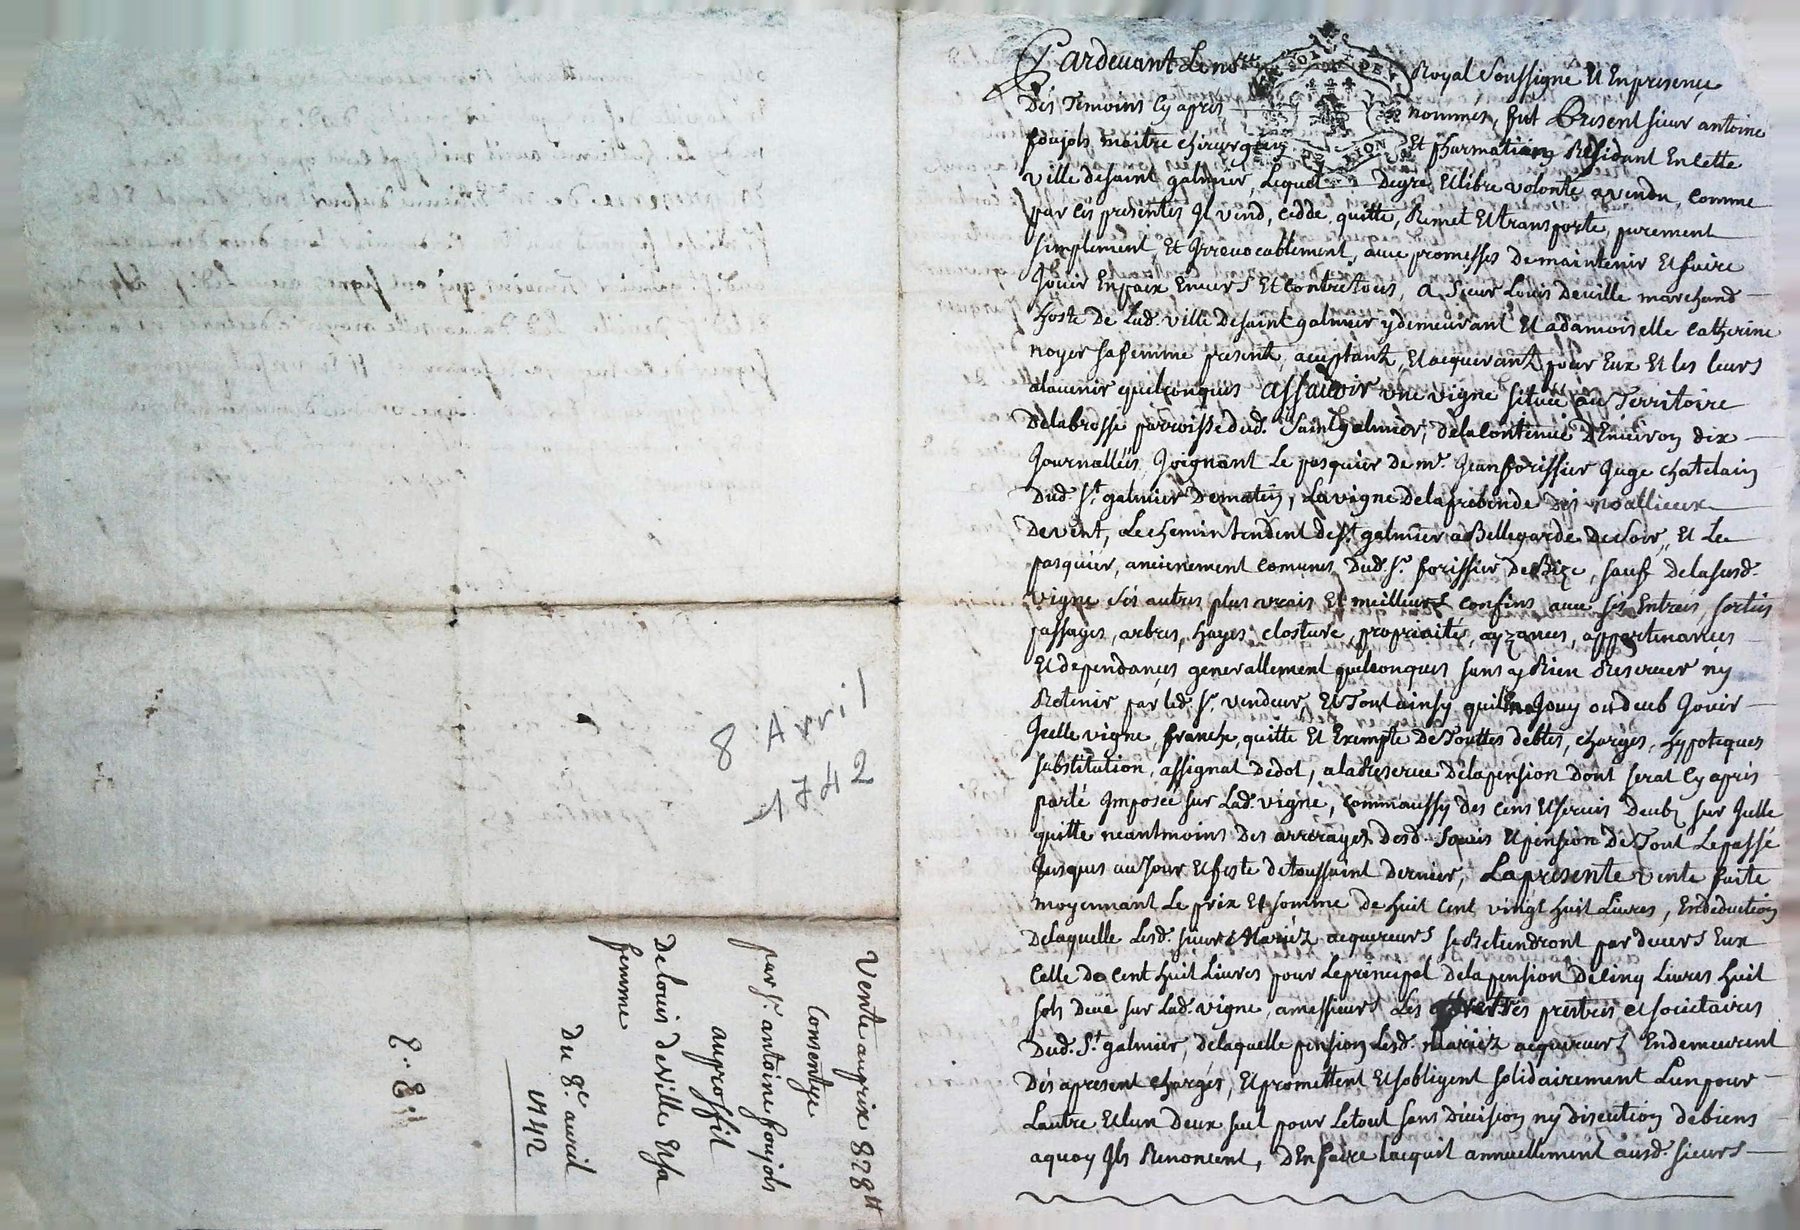 Pardevant Le no.re Royal Soussigné Et En presence
Des Temoins Cy apres nommés, fut Present sieur antoine
foujols maitre chirurgien Et pharmatien Residant En cette
Ville de saint galmier, Lequel De gre Et libre volonte a vendu, comme
par ces presentes Il vend, cedde, quitte, Remet Et transporte, purement
simplement, Et Irrevocablement, avec promesses De maintenir Et faire
Jouir En paix Envers Et contre tous, a sieur Louis deville marchand
hoste De Lad. ville De saint galmier y demeurant Et a damoiselle Catherine
noyer sa femme present, aceptant, Et acquerant pour Eux Et les leurs
a lavenir quelconques assavoir une vigne située au Territoire
De la brosse parroisse dud. Saint galmier, De la contenue D'Environ dix
Journallées, Joignant Le pasquier de mr. Jean forissier Juge chatelain
Dud. St. galmier De matin, La vigne De la prebende des noallieux
De vent, Le chemin tendent de St. galmier a Bellegarde De soir, Et Le
pasquier, anciennement comuns Dud. Sr. forissier De Bize, sauf De la susd.
vigne Ses autres plus vrais Et meilleurs confins, avec ses Entrees, sorties
passages, arbres, hayes, closture, propriaité, ayzances, appartenances
Et dependances generallement quelconques sans y Rien Reserver ny
Retenir par led. Sr. vendeur, Et Tout ainsy quil En a Jouy ou deub Jouir
Icelle vigne, franche, quitte Et Exempte De Touttes debtes, charges, hypoteques
substitution, assignat De dot, a la Reserve De la pension dont serat Cy apres
parlé Imposée sur Lad. vigne, comm'aussy des cens Et servis Deub sur Icelle
quitte neantmoins Des arrerages Desd. Servis Et pension De Tout Le passé
Jusques au Jour Et feste de toussaint dernier, La presente vente faite
moyennant Le prix Et somme de huit Cent vingt huit Livres, En deduction
De laquelle Lesd. sieurs Mariéz acquereurs se Retiendront par devers Eux
Celle de Cent huit Livres pour Le principal De la pension De Cinq Livres huit
sols Deüe sur Lad. vigne, a messieurs Les prestres et societaires
Dud. St. galmier, De laquelle pension Lesd. mariéz acquereurs En demeurent
Dés apresent chargés, Et promettent Et sobligent solidairement L'un pour
Lautre Et lun Deux seul pour Le tout sans Division ny discution de biens
a quoy Ils Renoncent, D'En faire lacquit annuellement ausd. sieurs
8 Avril
1742
Vente au prix 828 lt
Consentye
par Sr. antoine foujols
au proffit
De Louis deville Et sa
femme
Du 8e. avril
1742